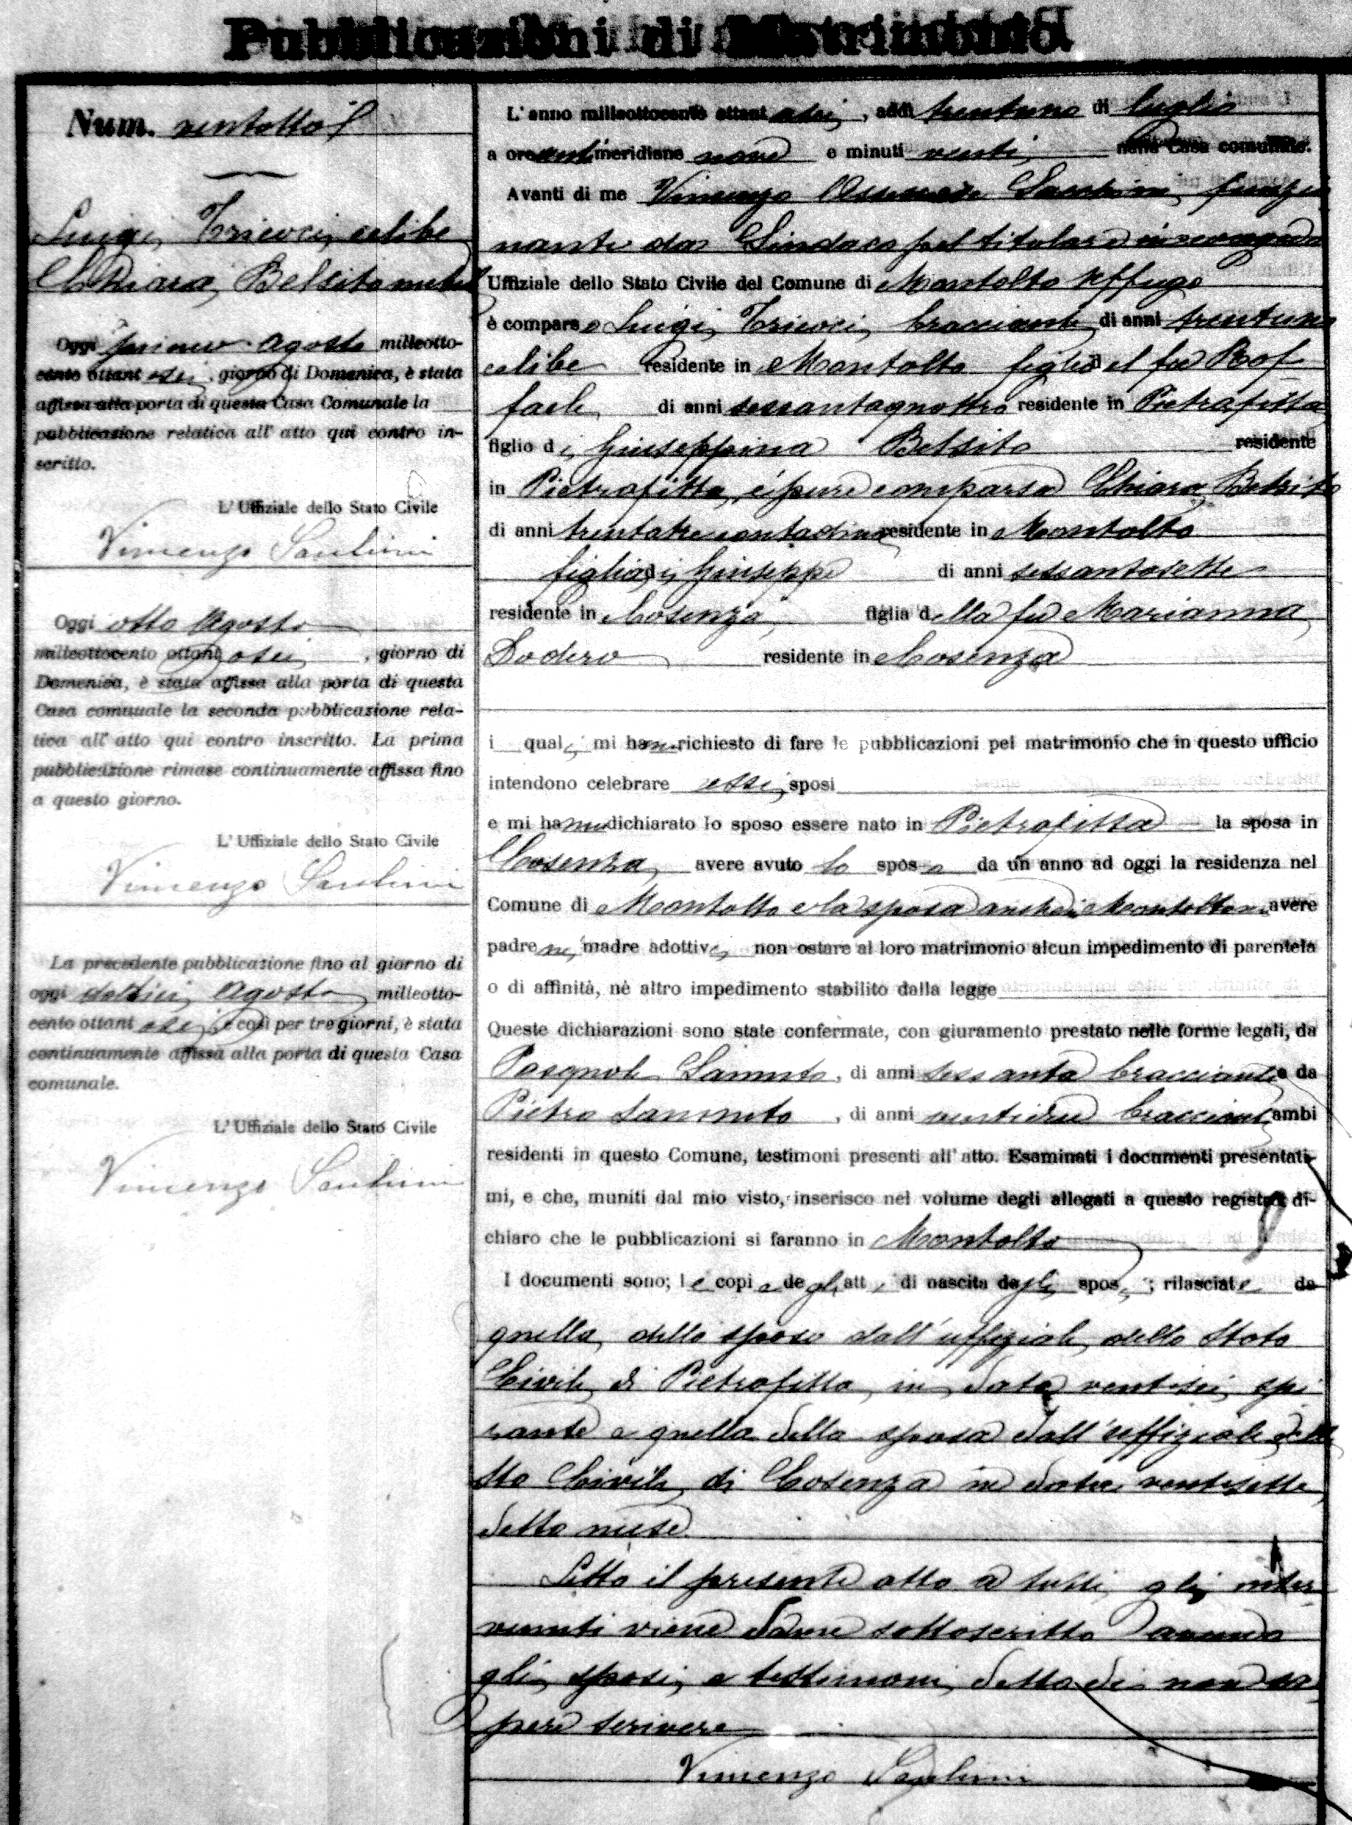 Pubblicazioni di Matrimonio.
Num. ventotto
Luigi Tricoci celibe
Chiara Belsito nubile
Oggi primo Agosto milleotto-
cento ottantasei, giorno di Domenica, è stata
affissa alla porta di questa Casa Comunale la
pubblicazione relativa all' atto qui contro in-
scritto.
L' Uffiziale dello Stato Civile
Vincenzo Santini
Oggi otto Agosto
milleottocento ottantasei, giorno di
Domenica, è stata affissa alla porta di questa
Casa comunale la seconda pubblicazione rela-
tiva all' atto qui contro inscritto. La prima
pubblicazione rimase continuamente affissa fino
a questo giorno.
L' Uffiziale dello Stato Civile
Vincenzo Santini
La precedente pubblicazione fino al giorno di
oggi dodici Agosto milleotto-
cento ottantasei, e così per tre giorni, è stata
continuamente affissa alla porta di questa Casa
comunale.
L' Uffiziale dello Stato Civile
Vincenzo Santini
L' anno milleottocento ottantasei, addì trentuno di luglio
a ore antimeridiane nove e minuti venti, nella Casa comunale.
Avanti di me Vincenzo Assessore Santini, funzio
nante da Sindaco pel titolare
Uffiziale dello Stato Civile del Comune di Montalto Uffugo
è comparso Luigi Tricoci, bracciante, di anni trentuno
celibe residente in Montalto figlio del fu Raf
faele, di anni sessantaquattro residente in Pietrafitta
figlio di Giuseppina Belsito residente
in Pietrafitta, è pure comparsa Chiara Belsito
di anni trentatre contadina residente in Montalto
figlia di Giuseppe di anni sessantasette
residente in Cosenza, figlia della fu Marianna
Dodero residente in Cosenza
i quali mi hanno richiesto di fare le pubblicazioni pel matrimonio che in questo ufficio
intendono celebrare essi sposi
e mi hanno dichiarato lo sposo essere nato in Pietrafitta la sposa in
Cosenza, avere avuto lo sposo da un anno ad oggi la residenza nel
Comune di Montalto e la sposa anche in Montalto non avere
padre nè madre adottivi, non ostare al loro matrimonio alcun impedimento di parentela
o di affinità, nè altro impedimento stabilito dalla legge
Queste dichiarazioni sono state confermate, con giuramento prestato nelle forme legali, da
Pasquale Sannuto, di anni sessanta bracciante e da
Pietro Sannuto, di anni bracciante ambi
residenti in questo Comune, testimoni presenti all' atto. Esaminati i documenti presentati-
mi, e che, muniti dal mio visto, inserisco nel volume degli allegati a questo registro di-
chiaro che le pubblicazioni si faranno in Montalto
I documenti sono; le copie degli atti di nascita degli sposi; rilasciate da
quella, dello sposo dall' uffiziale, dello Stato
Civile di Pietrafitta, in data ventisei, spi
rante e quella della sposa dall' uffiziale dello
Sto Civile, di Cosenza in data ventisette
detto mese.
Letto il presente atto a tutti, gli inter
venuti viene da me sottoscritto avendo
gli sposi, e testimoni, detto di non sa
pere scrivere
Vincenzo Santini